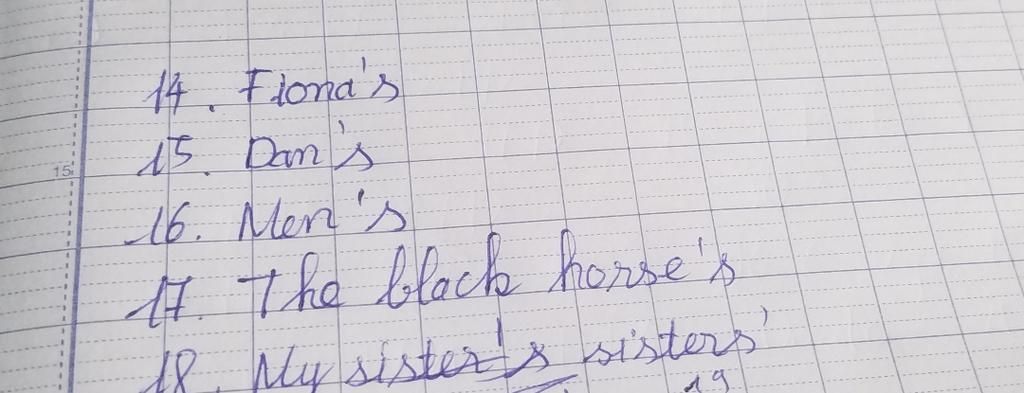 14. Fiona's
15. Dan's
15
16. Men's
17. The black horse's
18. My sister's sisters'
19